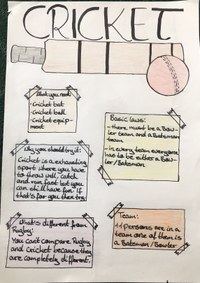 CRICKET
What you need:
-Cricket bat
-Cricket ball
-Cricket equip-
ment
Basic laws:
- there must be a Bow-
ler team and a Batsman
team
- in every team everyone
has to be either a Bow-
ler / Batsman
Why you should try it:
Cricket is a exhausting
sport where you have
to throw well, catch
and run fast but you
can still have fun. If
that's for you then try
What's different from
Rugby:
You can't compare Rugby
and Cricket because they
are completely different
Team:
11 Persons are in a
team one of them is
a Batsman / Bowler